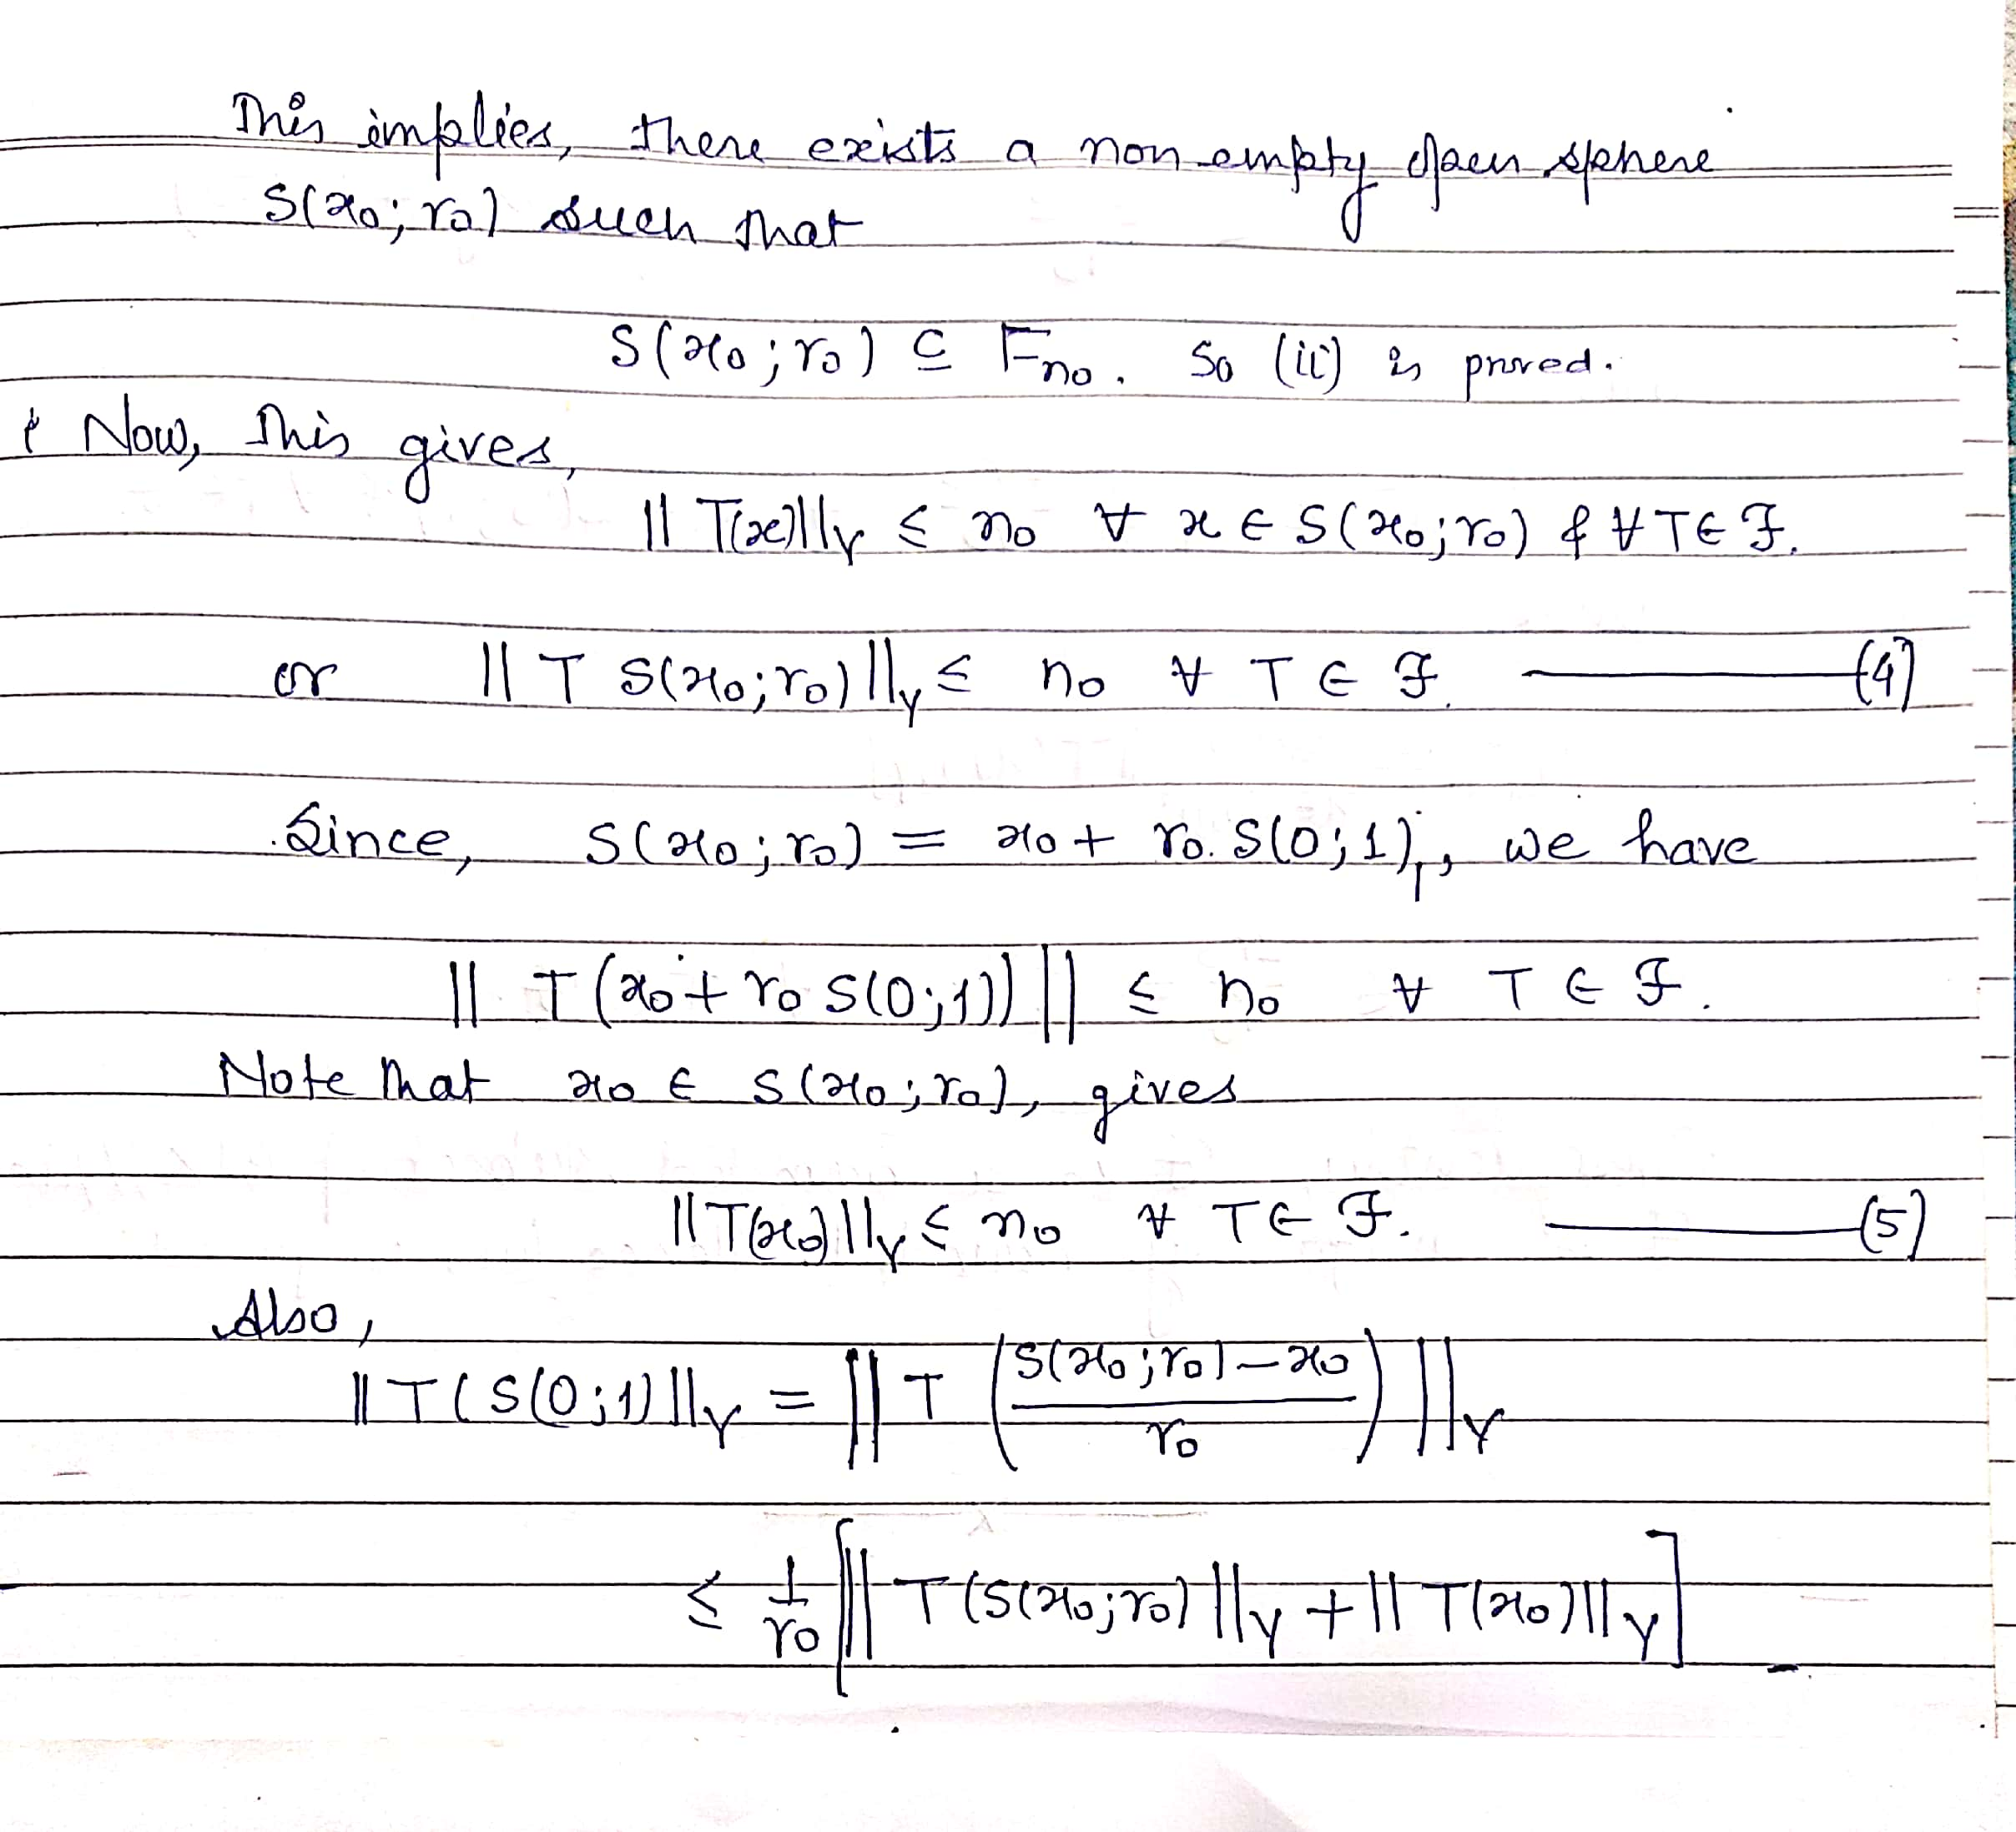 This implies, there exists a non empty open sphere
S(x0; r0) such that
S(x0; r0) ⊆ Fn0. So (ii) is proved.
& Now, this gives,
|| T(x)||Y ≤ n0 ∀ x ∈ S(x0; r0) & ∀ T ∈ ℱ.
or || T S(x0; r0) ||Y ≤ n0 ∀ T ∈ ℱ. —— (4)
Since, S(x0; r0) = x0 + r0. S(0; 1), we have
|| T (x0 + r0 S(0; 1)) || ≤ n0 ∀ T ∈ ℱ.
Note that x0 ∈ S(x0; r0), gives
|| T(x0) ||Y ≤ n0 ∀ T ∈ ℱ. —— (5)
Also,
|| T ( S(0; 1) ||Y = || T ( (S(x0; r0) – x0) / r0 ) ||Y
≤ 1/r0 [ || T (S(x0; r0) ||Y + || T(x0) ||Y ]